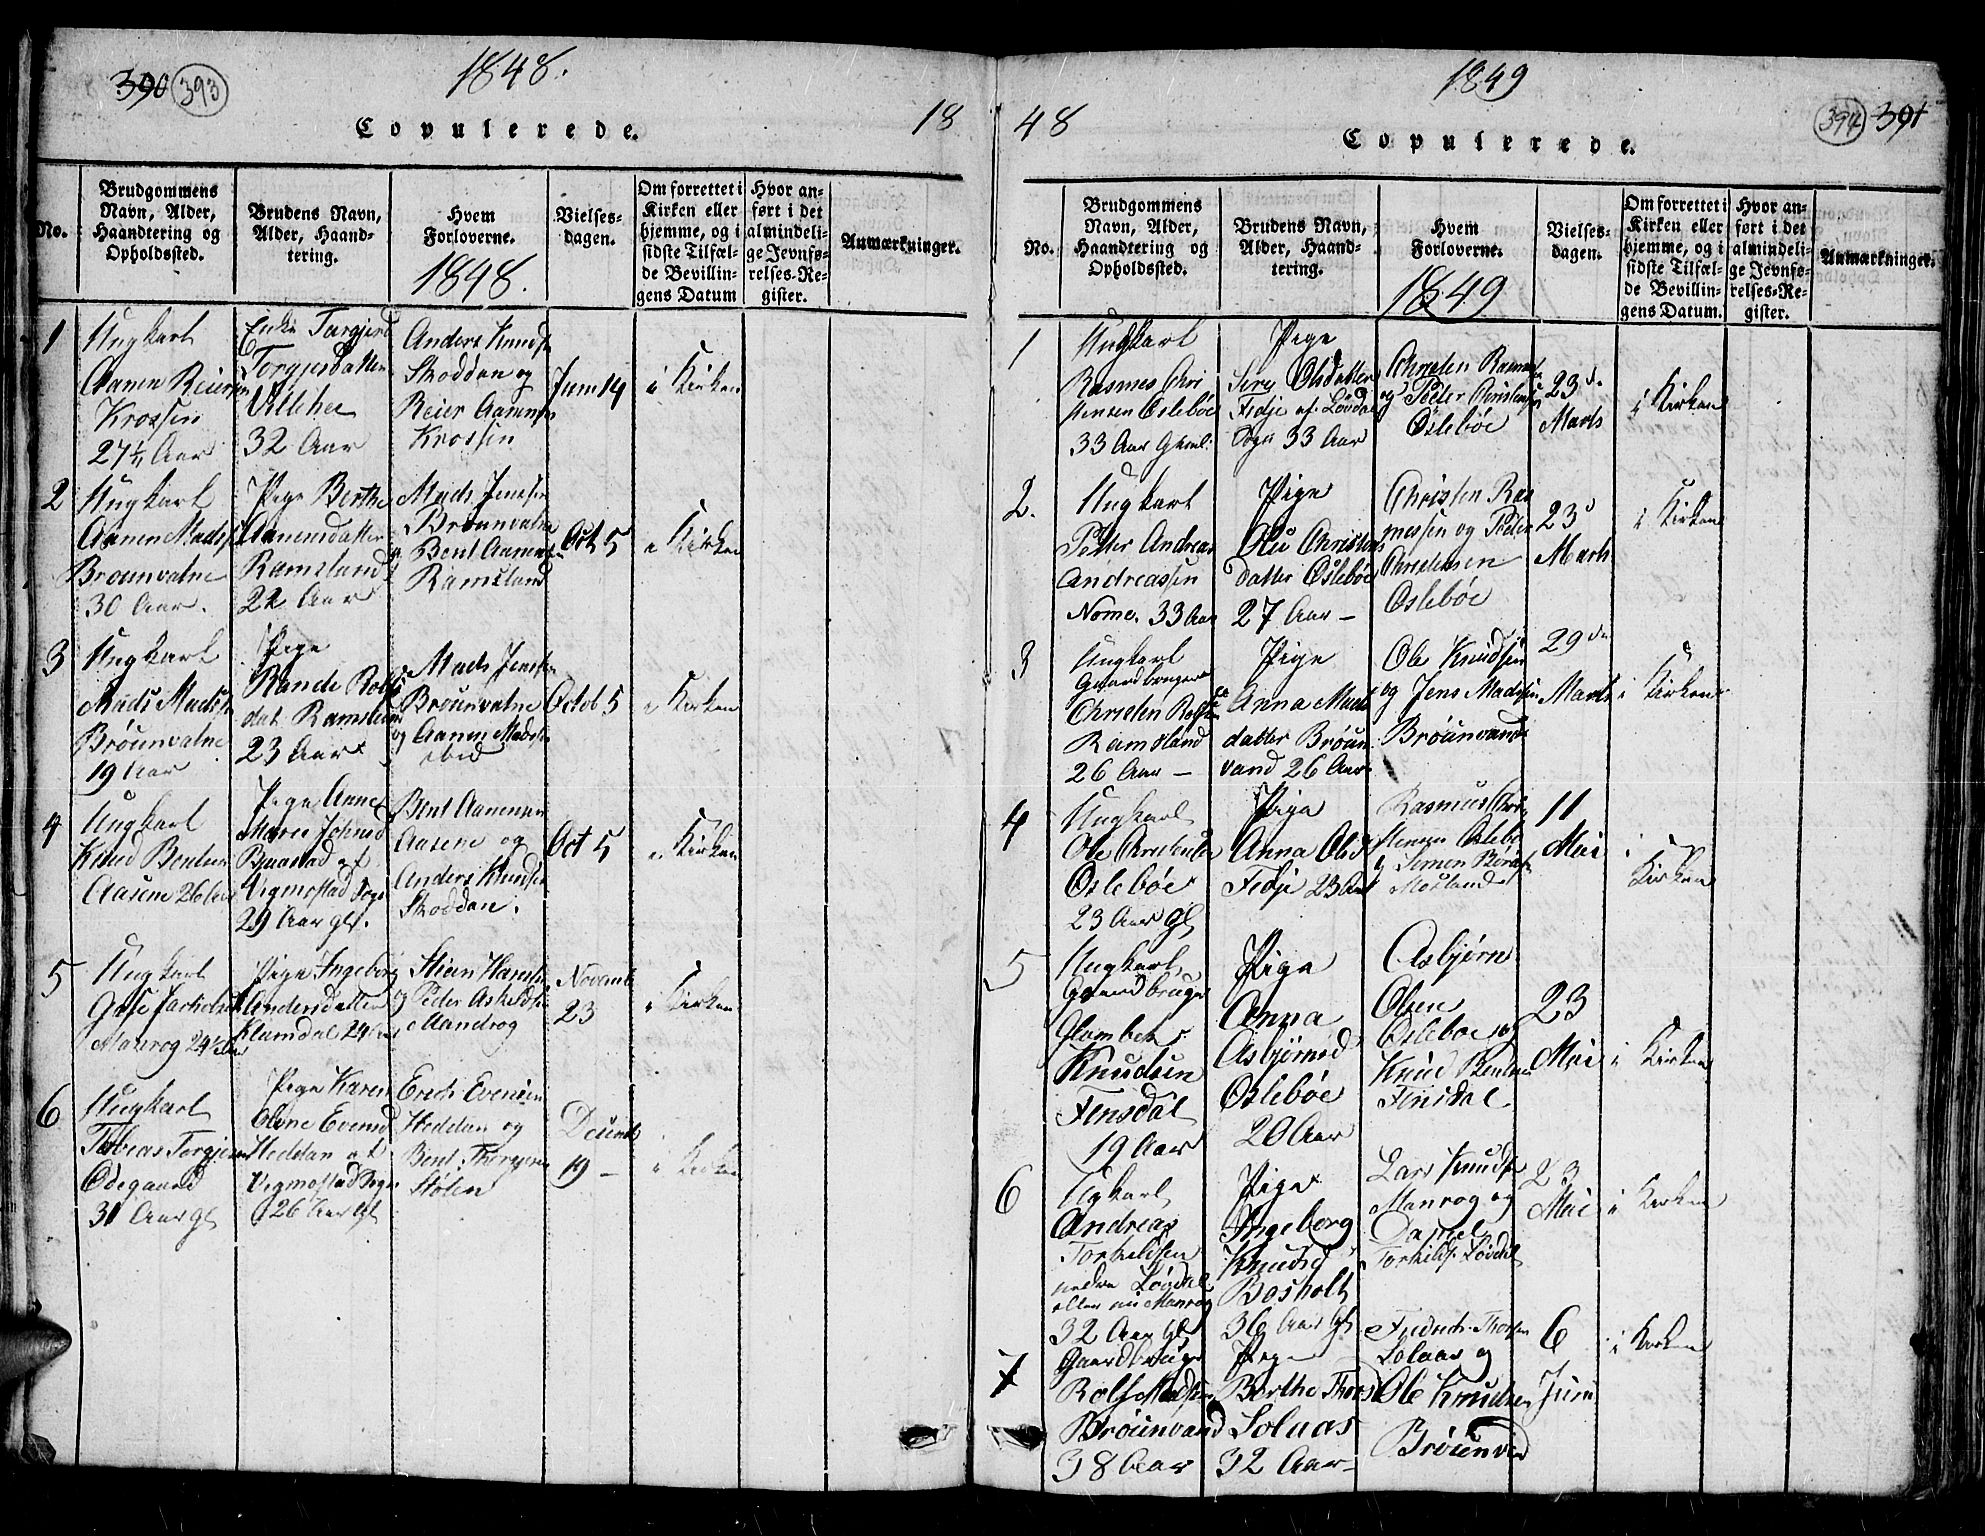 390 393
1848.
18
Copulerede.
No.
Brudgommens Navn, Alder, Haandtering og Opholdssted.
Brudens Navn, Alder, Haandtering.
Hvem Forloverne.
1848.
Vielsesdagen.
Om forrettet i Kirken eller hjemme, og i sidste Tilfælde Bevillingens Datum
Hvor anført i det almindelige Jevnførelses-Register.
Anmærkninger.
1
Ungkarl
Aanen Reiersen
Krossen
27½ Aar
Enke Torgjerd
Torgjesdatter
Villehei
32 Aar
Anders Knudsen
Skoddan og
Reier Aanensen
Krossen
Juni 14
i Kirken
2
Ungkarl
Aanen Madssen
Brounvatne
30 Aar.
Pige Berthe
Aanensdatter
Ramsland
22 Aar
Mads Jenssen
Brounvatne
Bent Aanensen
Ramsland
Oct 5
i Kirken
3
Ungkarl
Mads Madssen
Brounvatne
19 Aar
Pige
Rande Rolfs
dat. Ramsland
23 Aar
Mads Jenssen
Brounvatne
og Aanen Madssen
ibid
Octob 5
i Kirken
4
Ungkarl
Knud Bentsen
Aasene 26 Aar
Pige Anne
Marie Johnsd
Bjaastad af
Vigmostad Sogn
29 Aar gl.
Bent Aanensen
Aasene og
Anders Knudsen
Skoddan.
Oct 5
i Kirken
5
Ungkarl
Manrog 24½ Aar
Pige Ingeborg
Andersdatter
Klamdal 24 Aar
Stien Hansen
og Peder Askeldsen
Mandrog
Novemb
23
i Kirken
6
Ungkarl
Tobias Torgjersen
Ödegaard
31 Aar gl
Pige Karen
Olene Evensd
Heddan af
Vigmostad Sogn
26 Aar gl
Erich Evensen
Heddan og
Bent Thorgjersen
Stölen
Decemb
19 —
i Kirken
1849
48
394 391
Copulerede.
No.
Brudgommens Navn, Alder, Haandtering og Opholdssted.
Brudens Navn, Alder, Haandtering.
Hvem Forloverne.
1849
Vielsesdagen.
Om forrettet i Kirken eller hjemme, og i sidste Tilfælde Bevillingens Datum.
Hvor anført i det almindelige Jevnførelses-Register.
Anmærkninger.
1
Ungkarl
Rasmus Chri
stensen Osleböe
33 Aar gamel.
Pige
Siri Olsdatter
Fidje af Lövdal
Sogn 33 Aar
Christen Rasmussen
og Peder Christensen
Osleböe
23de
Marts
i Kirken
2.
Ungkarl
Petter Andreas
Andreassen
Nome. 33 Aar
Pige
Oli Christens
datter Osleböe
27 Aar —
Christen Ras
mussen og Peder
Christensen
Osleböe
23d
Marts
i Kirken
3
Ungkarl
Gaardbruger
Christen Rolfsen
Ramsland
26 Aar —
Pige
Anna Mads
datter Bröun
vand 26 Aar
Ole Knudsen
og Jens Madsen
Bröunvand
29de
Marts
i Kirken
4
Ungkarl
Ole Christensen
Osleböe
23 Aar gl
Pige
Anna Olsd
Fidje 23 Aar
Rasmus Chri
stensen Oslebö
og Simon Börufs
Mosland
11
Mai
i
Kirken
5
Ungkarl
Gaardbruger
Knudsen
Fensdal
19 Aar
Pige
Anna
Asbjörnsd
Osleböe
20 Aar
Asbjörn
Olsen
Osleboe og
Knud Bentsen
Finsdal
23
Mai
i Kirken
6
Ugkarl
Andreas
Torkeldsen
nedre Lövdal
eller nu Manrog
32 Aar gl
Pige
Ingeborg
Knudsd
Bosholt
36 Aar gl
Lars Knudsen
Manrog og
Daniel
Torkilds. Lövdal
23
Mai
i Kirken
7
Gaardbruger
Rolf Madsen
Bröunvand
38 Aar
Pige
Berthe Thors
Solaas
32 Aar —
Fridrich Thorsen
Solaas og
Ole Knudsen
Brönnvand
6
Juni
i Kirken